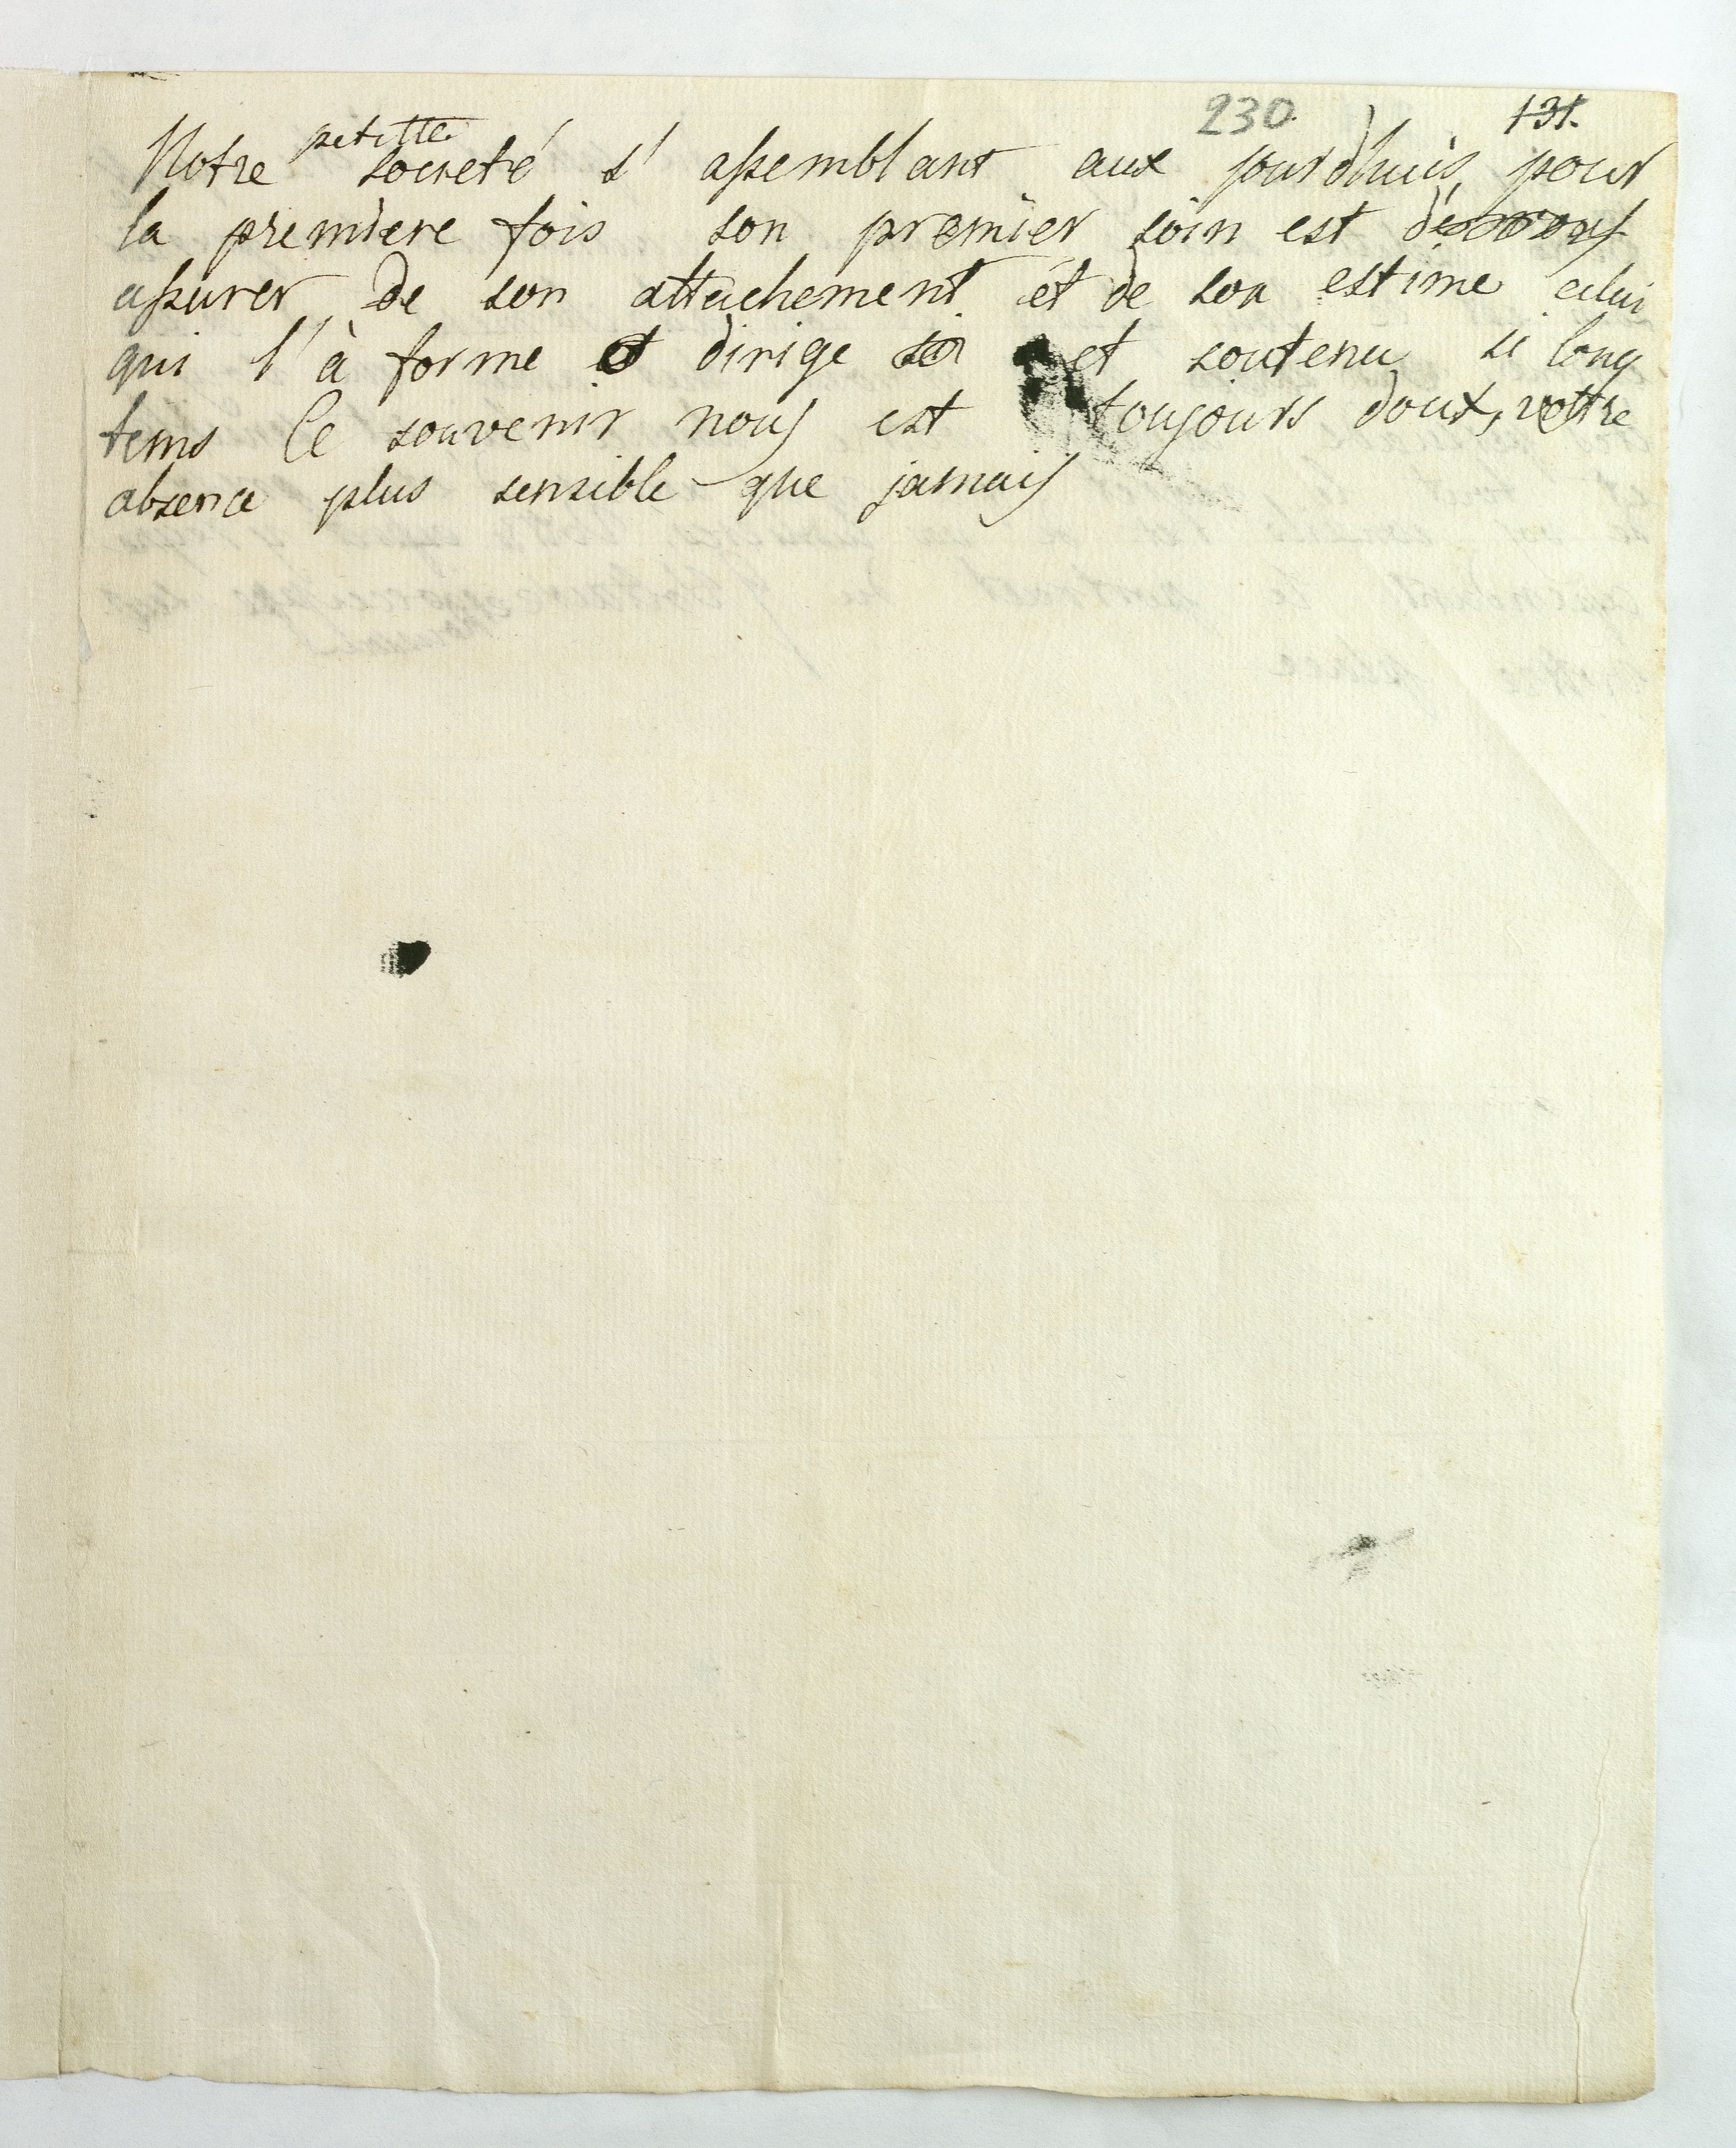 230. 131.
petitte
Notre societé s' assemblant aux jourdhuis, pour
la premiere fois son premier soin est de vous
assurer de son attachement et de son estime celui
qui l'à forme et dirige et soutenu si long
tems Ce souvenir nous est toujours doux, vottre
absence plus sensible que jamais